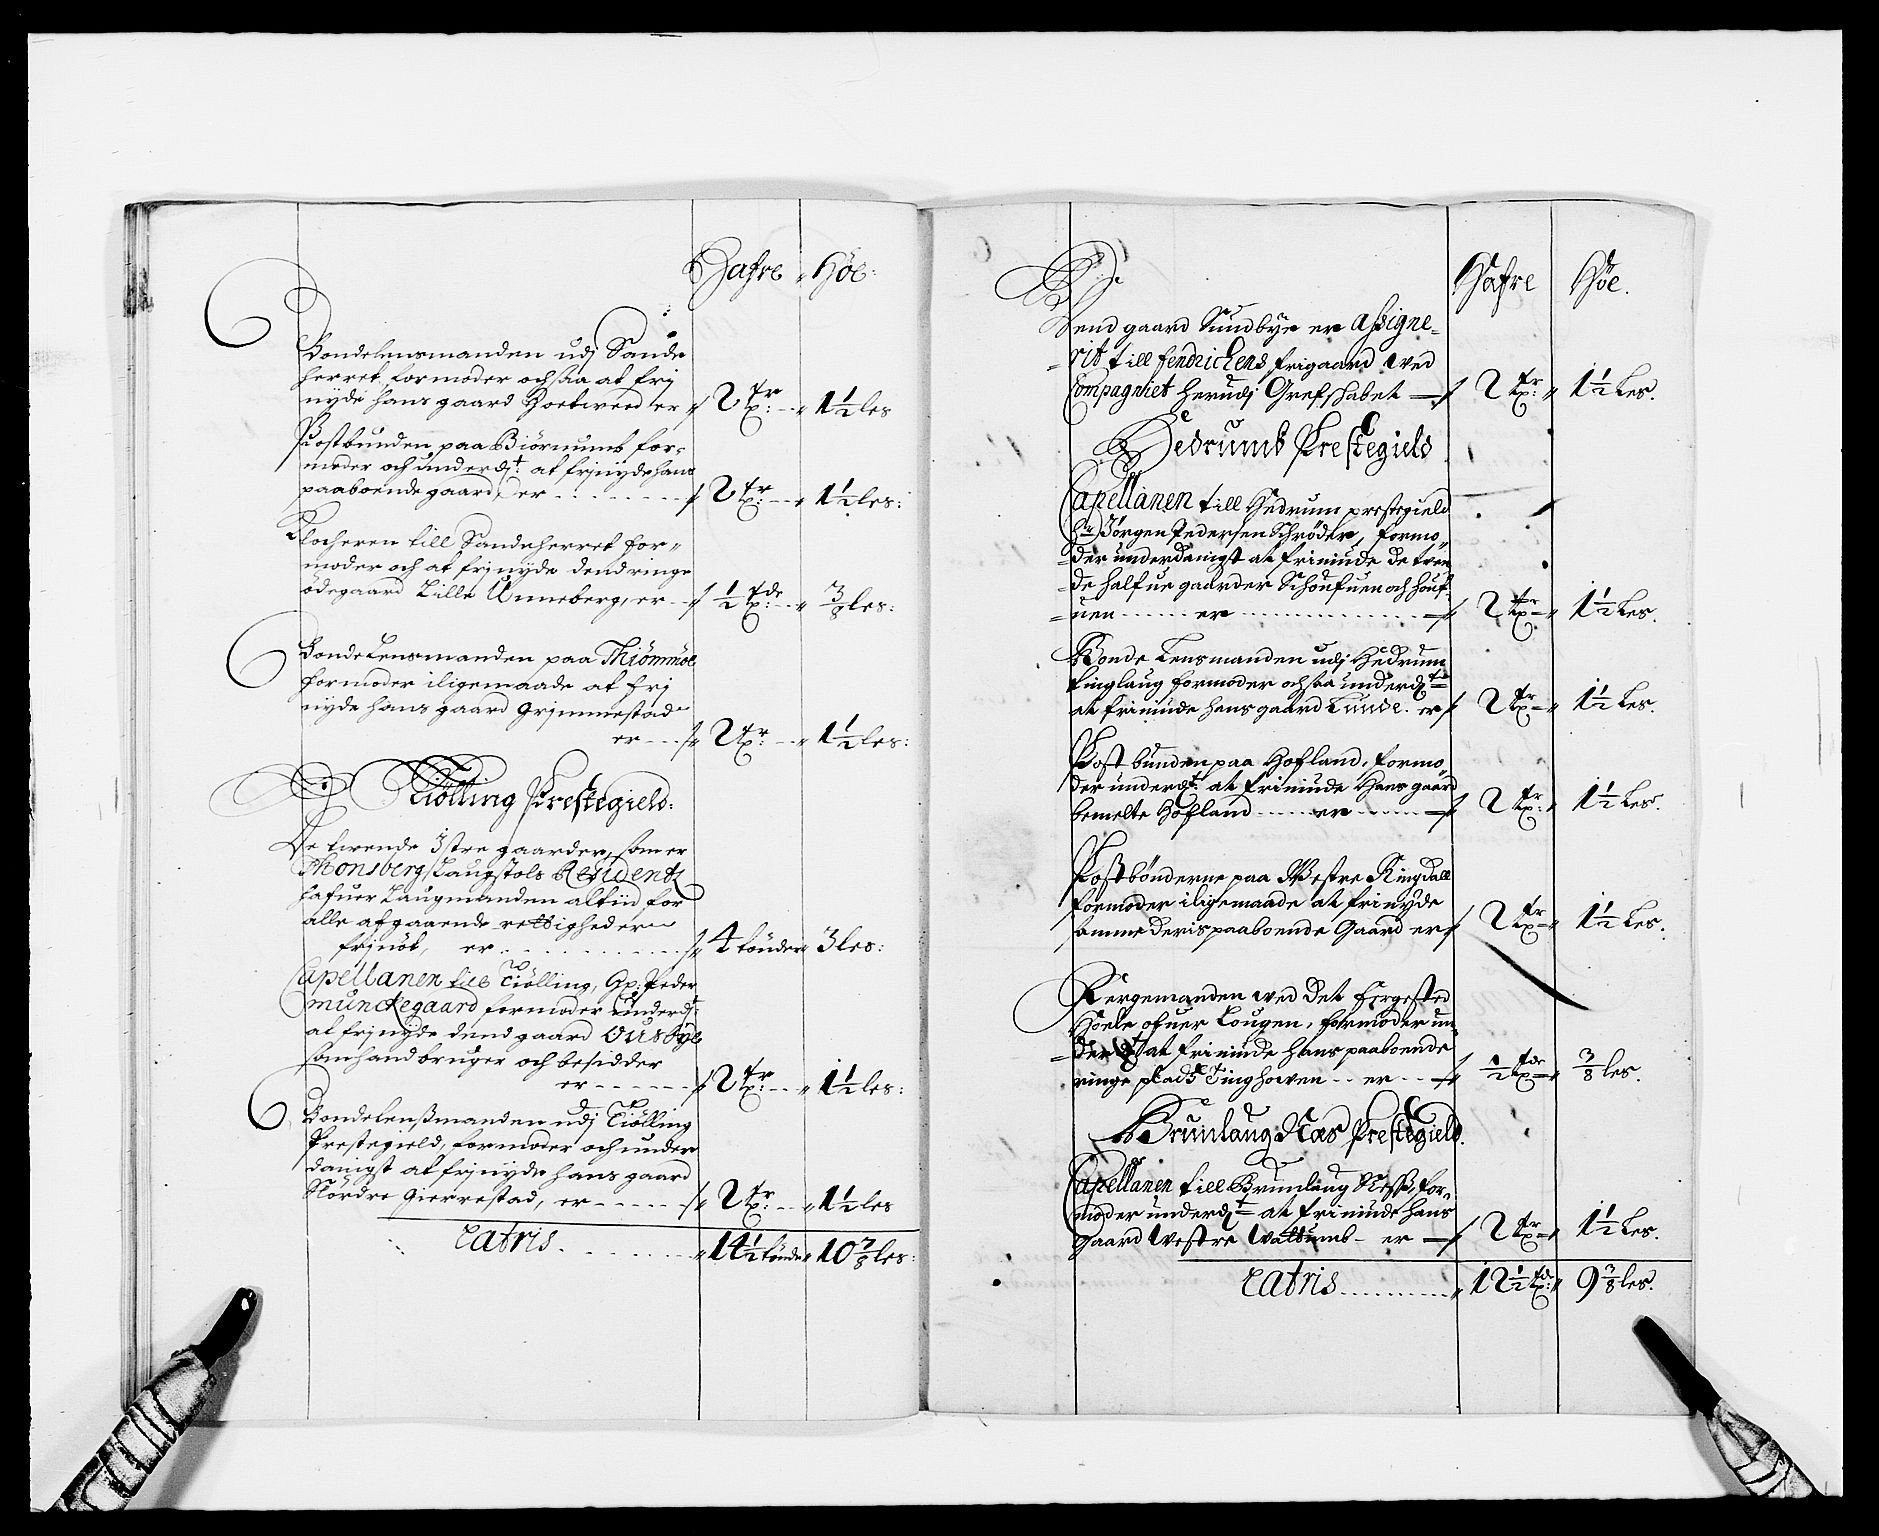 Hafre Höe:
Bondelensmanden udj Sande
herret formoder och saa at frj
nyde hans gaard er 2 tr: 1½ les
Postbunden paa Biörnumb for-
moder och underdt: at frjnyde hans
paaboende gaard, er 2 tr: 1½ les:
Klocheren till Sandeherret for-
moder och at frjnyde dend ringe
ödegaard Lille Unneberg, er ½ tde: 3/8 les:
Bondelensmanden paa Thiömmöe
formoder iligemaade at frj
nyde hans gaard Grimmestad
er 2 tr: 1½ les:
Tiölling Prestegield:
De twende Istre gaarder, som er
Thonsberg Laugstols Residentz
hafuer Laugmanden altid for
alle afgaaende rettigheder
frjnöt, er 4 tönder 3 les:
Capellanen till Tiölling, Hr: Peder
Munckegaard formoder Underdt:
at frjnyde dend gaard Ousbye
som hand bruger och besidder
er 2 tr: 1½ les:
Bondelenßmanden udj Tiölling
Prestegield, formoder och under
danigst at frjnyde hans gaard
Nördre Gierrestad, er 2 tr: 1½ les
Latris 14½ tönde 10 7/8 les:
Hafre Höe.
Dend gaard Sundbye er Assigne-
rit till fendrichens frigaard ved
Compagniet herudj Grefskabet 2 tr: 1½ Les.
Hedrumb Prestegield
Capellanen till Hedrum prestegield
Hr Jörgen Pedersen Schröder, formo-
der underdanigst at friniude de tven
de halfue gaarder Schoufuen och houf-
uen er 2 tr 1½ Les.
Bonde Lensmanden udj Hedrum
tinglaug formoder och saa underdt
at friniude hans gaard Lunde. er 2 tr 1½ Les.
Post bunden paa Hofland, formo
der underdt. at friniude Hans gaard
bemelte Hofland er 2 tr: 1½ Les.
Postbönderne paa Westre Ringdall
formoder iligemaade at frinyde
samme deris paaboende Gaard er 2 tr 1½ Les.
Fergemanden wed det fergested
Hoele ofuer Lougen, formoder un-
derdt at friniude hans paaboende
ringe plads Tinghowen er ½ tde 3/8 les.
Brunlaug Næs Prestegield.
Capellanen till Brunlaug Neß, for-
moder underdt at friniude hans
gaard Westre Wattumb er 2 tr 1½ Les.
Latris 12½ td: 9 3/8 les.